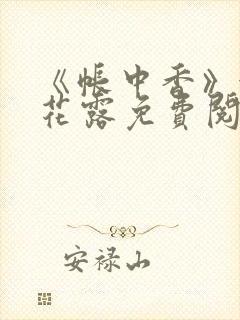 《帐中香》
花露免費閱
安禄山